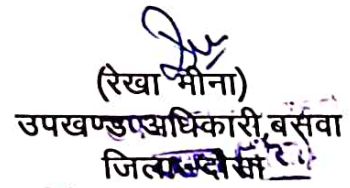 (रेखा मीना)
उपखण्ड अधिकारी, बसवा
जिला दौसा